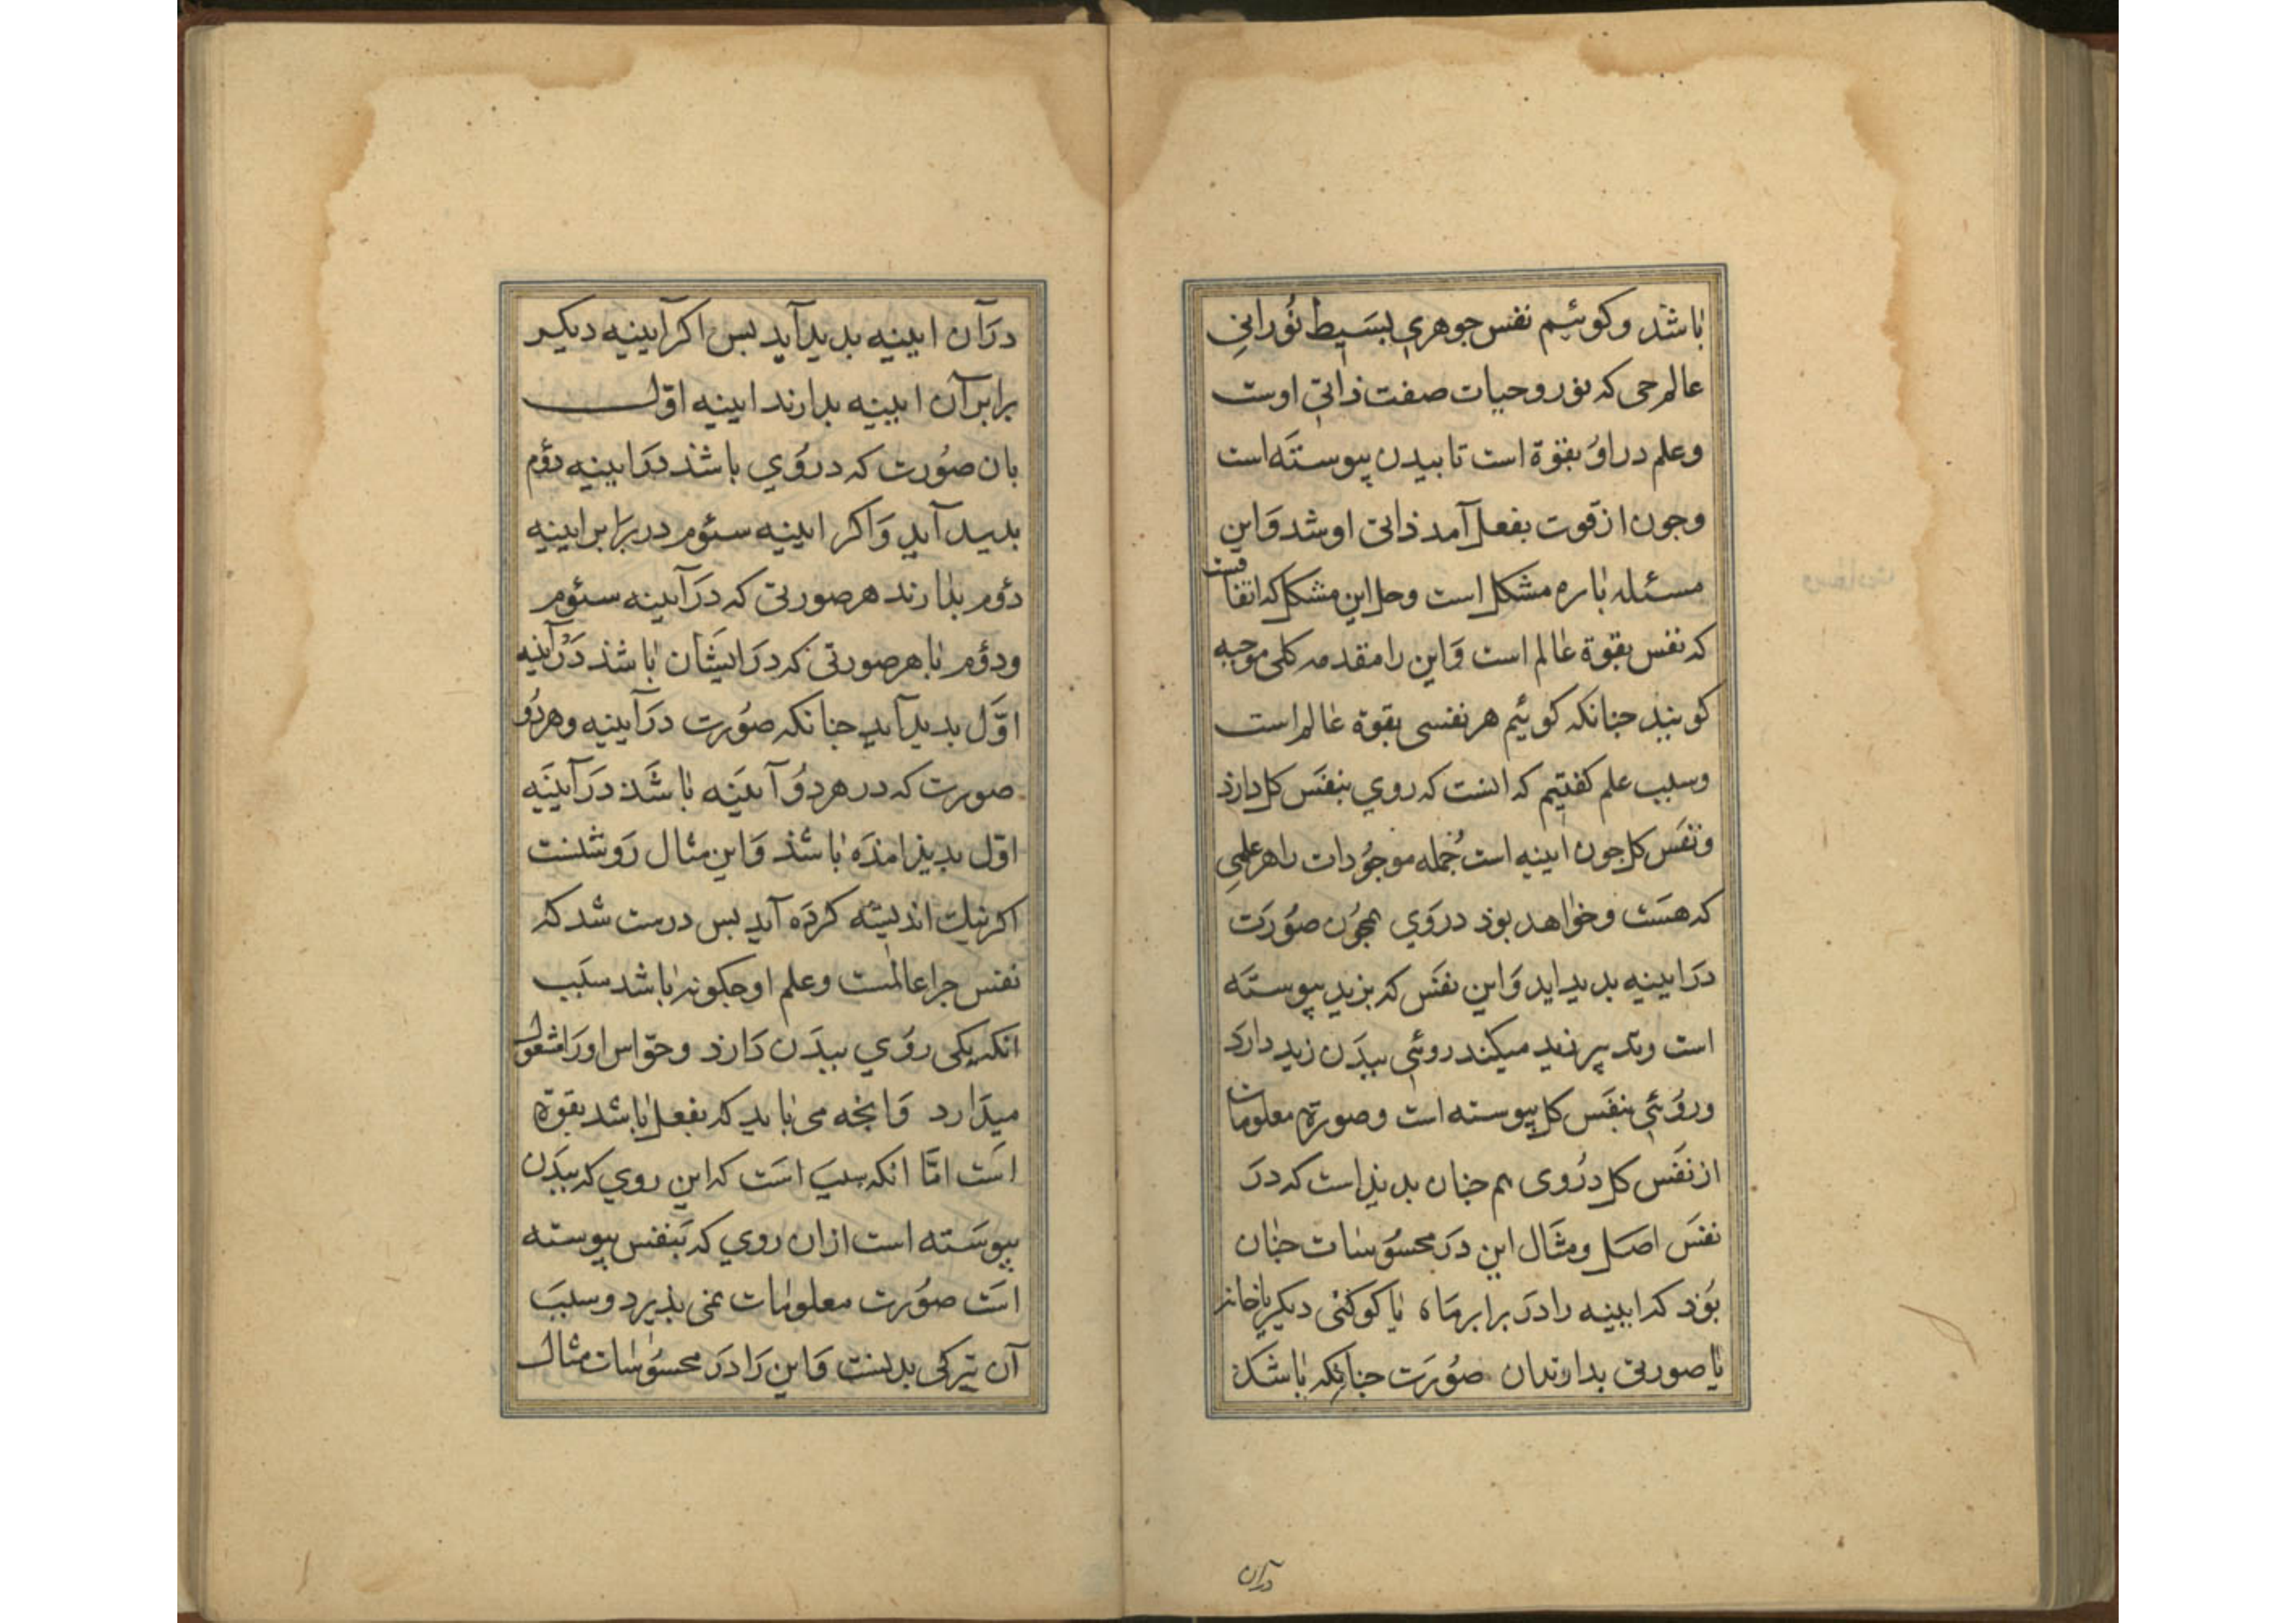 باشد و کوئیم نفس جوهری بسیط نورانی
عالم حی که نور و حیات صفت ذاتی اوست
وعلم در او بقوة است تا ببدن پیوسته است
وجون از قوت بفعل آمد ذاتی او شد و این
مسئله باره مشکل است و حل این مشکل که اتفاقست
که نفس بقوة عالم است و این را مقدمه کلی موجبه
کویند جنانکه کوئیم هر نفسی بقوة عالم است
وسبب علم کفتیم که انست که روی بنفس کل دارد
ونفس کل جون اینه است جمله موجودات را هر علمی
که هست و خواهد بود در وی همجون صورت
در ایینه بدید اید و این نفس که بزید پیوسته
است و تدبیر زید میکند روئی ببدن زید دارد
وروئی بنفس کل پیوسته است وصورت معلومات
از نفس کل در وی هم جنان بدیذ است که در
نفس اصل و مثال این در محسوسات جنان
بوذ که ایینه را در برابر ماه یا کوکبی دیکر یا خانه
یا صورتی بدارند ان صورت جنانکه باشد
دران
دران ایینه بدید آید بس اکر آیینه دیکر
برابر آن ایینه بدارند ایینه اول
بان صورت که در وی باشد در ایینه دوم
بدید آید و اکر ایینه سئوم در برابر ایینه
دوم بدارند هر صورتی که در آیینه سئوم
ودوم با هر صورتی که در ایشان باشذ در آینه
اول بدید آید جنانکه صورت در آیینه و هر دو
صورت که در هر دو آیینه باشد در آیینه
اول بدیذ امذه باشذ و این مثال روشنست
اکر نیک اندیشه کرده آید بس درست شد که
نفس جرا عالمست و علم او جکونه باشد سبب
انکه یکی روی ببدن دارد و حواس او را مشغول
میدارد و انجه می باید که بفعل باشد بقوة
است اما انکه سبب است که این روی که ببدن
پیوسته است ازان روی که بنفس پیوسته
است صورت معلومات نمی بذیرد و سبب
آن تیرکی بدنست و این را در محسوسات مثال